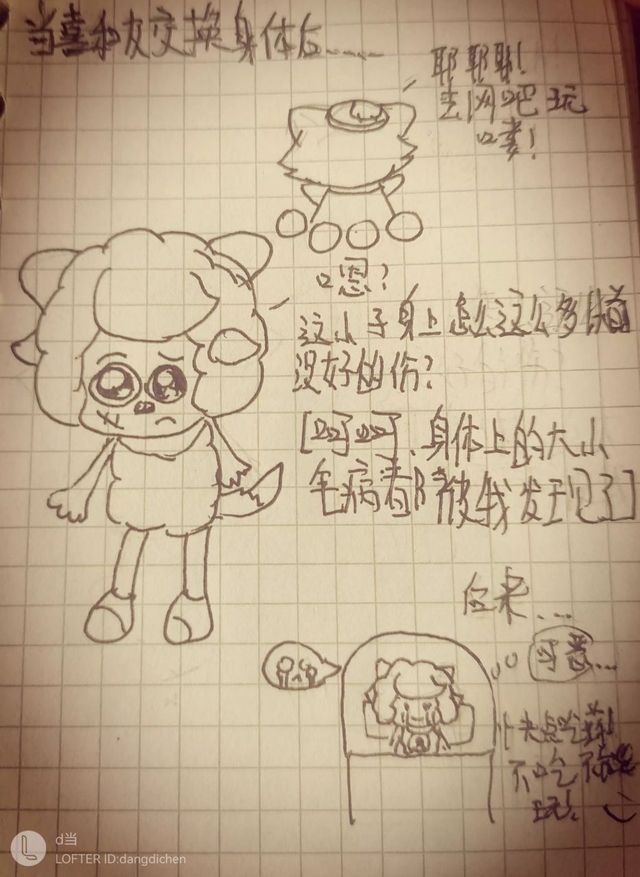 当喜和友交换身体后......
耶耶耶!
去网吧玩
喽!
嗯?
这小子身上怎么这么多
没好的伤?
[呵呵,身体上的大小
毛病都被我发现了]
后来...
牙益...
快点吃药!
不吃不
玩!
d当
LOFTER ID:dangdichen